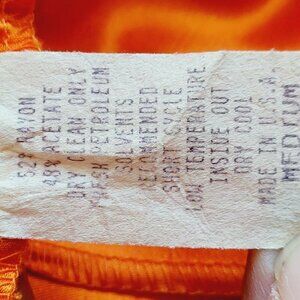 52% RAYON
48% ACETATE
DRY CLEAN ONLY
FRESH PETROLEUM
SOLVENTS
RECOMMENDED
SHORT CYCLE
LOW TEMPERATURE
INSIDE OUT
DRY COOL
MADE IN U.S.A.
MEDIUM